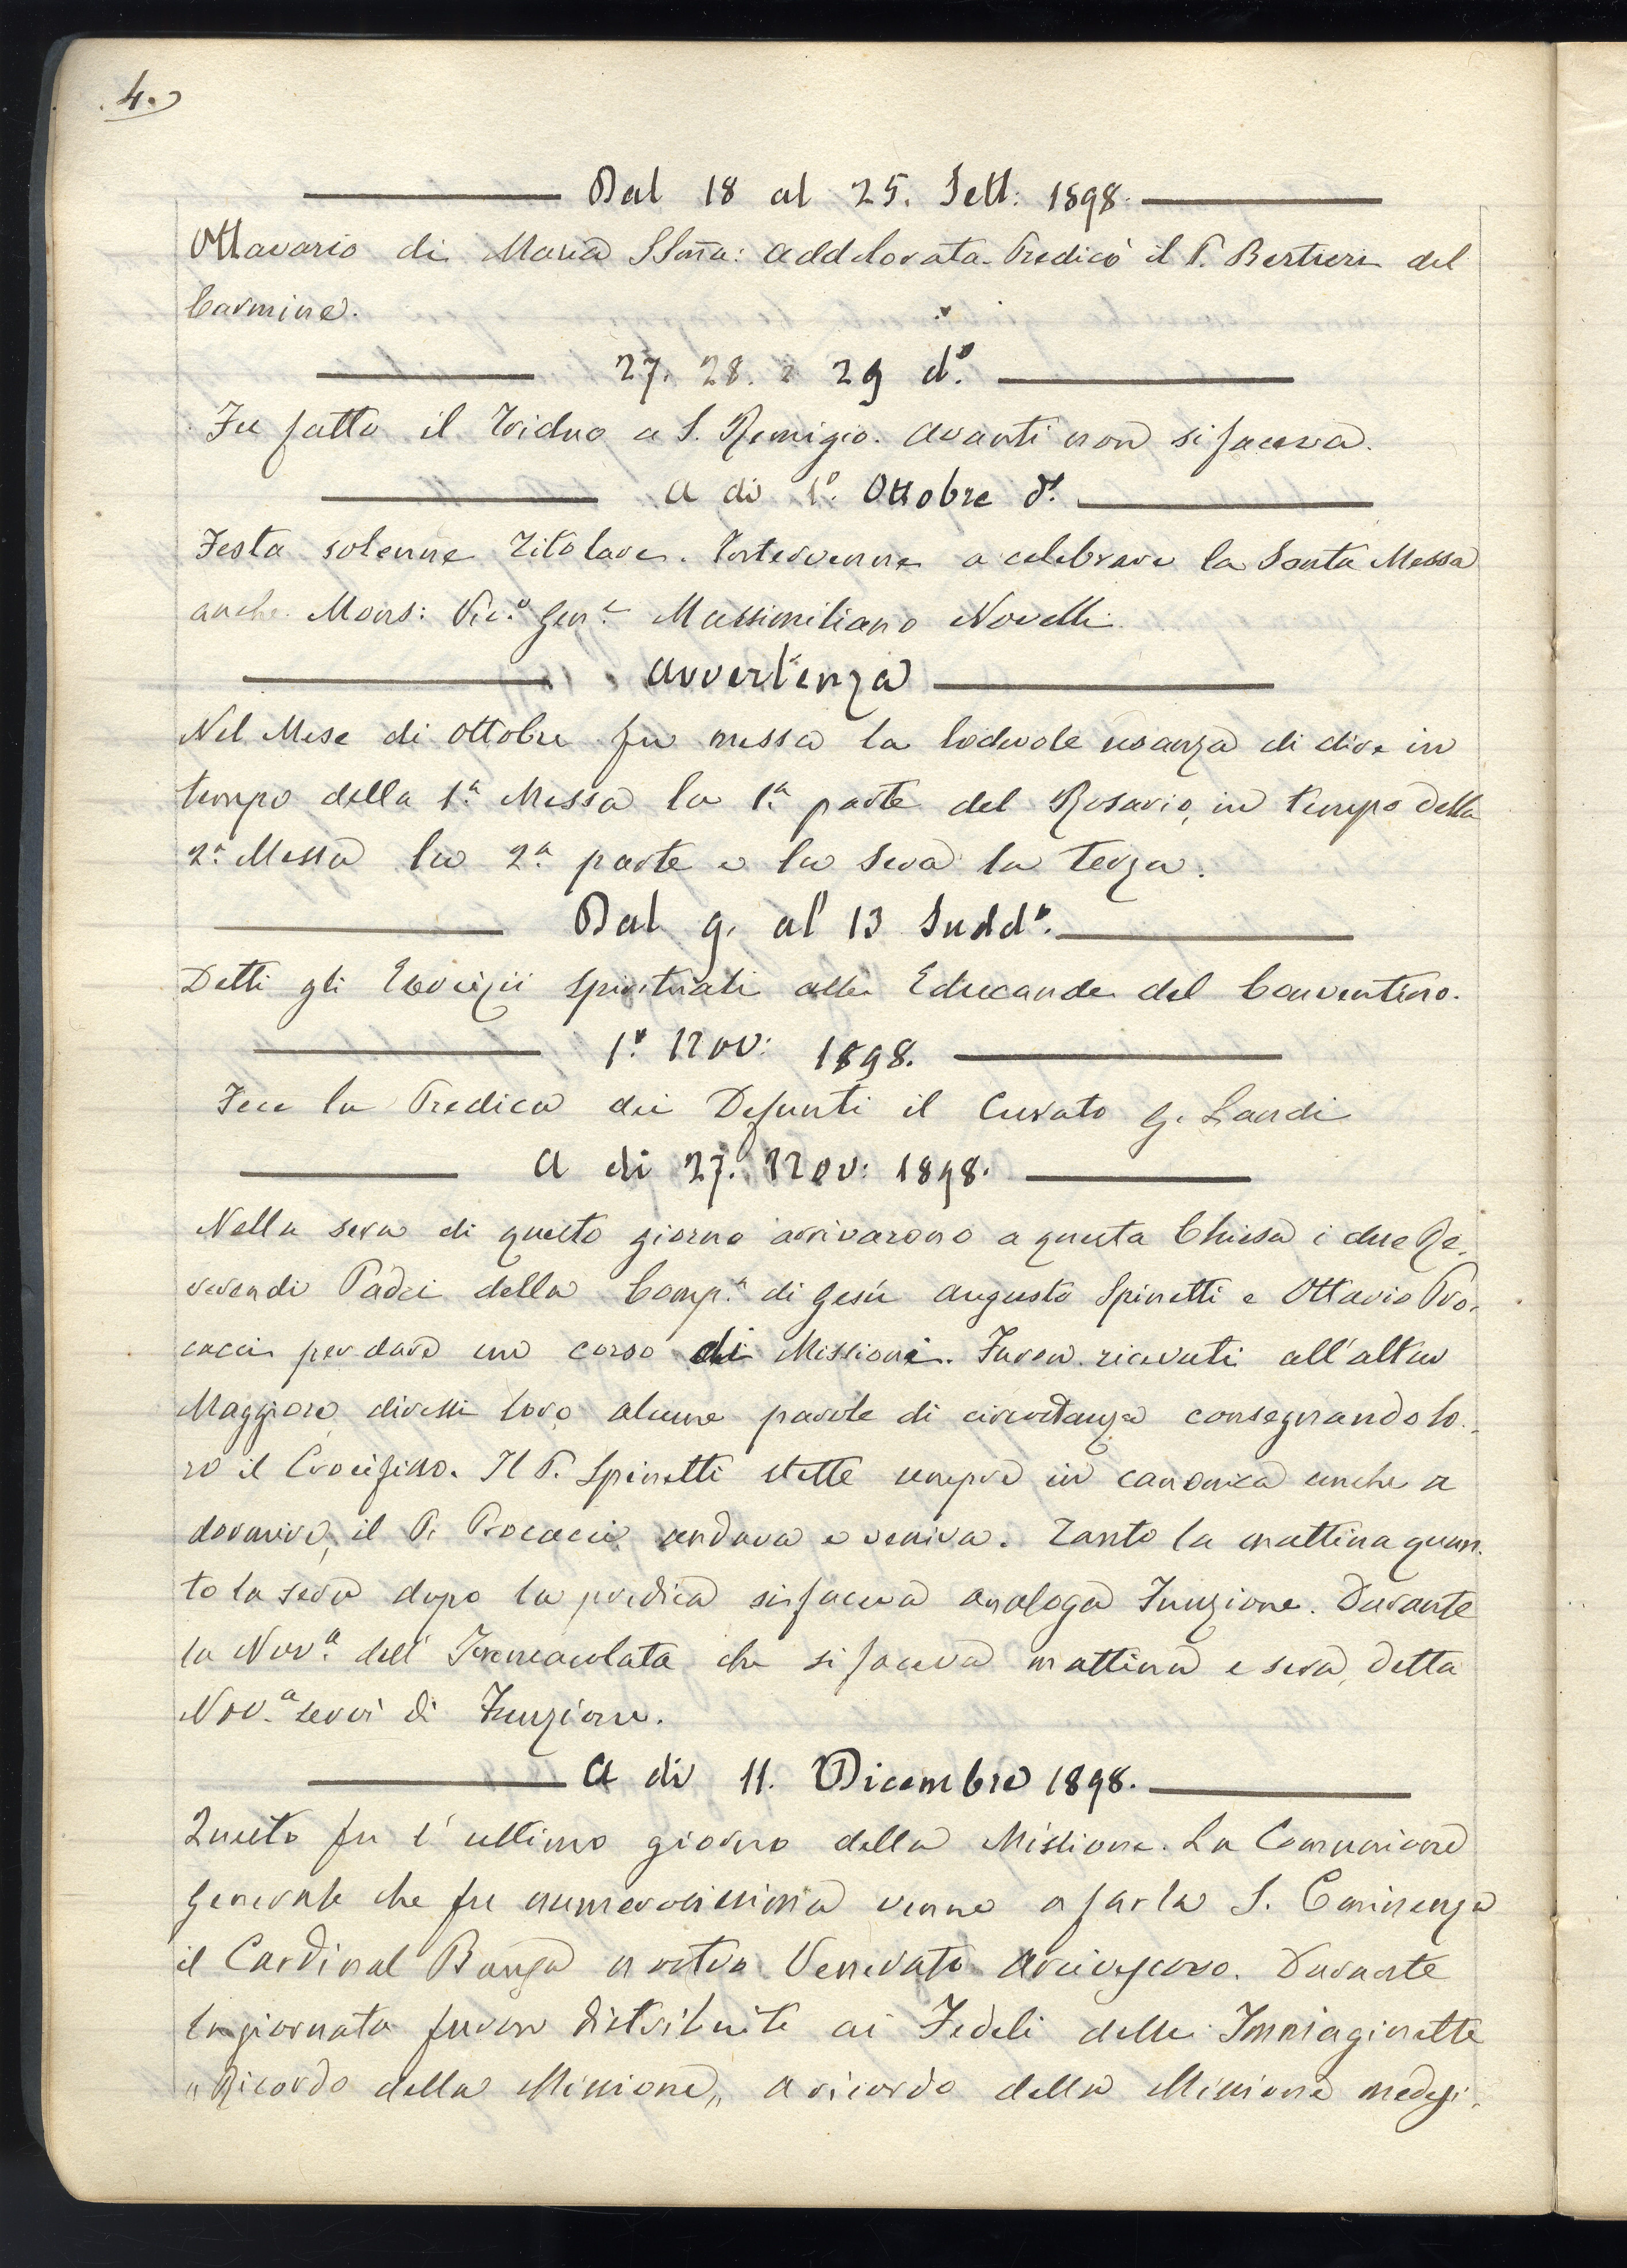 4.
Dal 18 al 25. Sett: 1898.
Ottavario di Maria SSma: Addolorata. Predicò il P. Bertieri del
Carmine.
27. 28. e 29 do.
Fu fatto il Triduo a S. Remigio. Avanti non si faceva.
A di 1o. Ottobre do.
Festa solenne Titolare. Intervenne a celebrare la Santa Messa
anche Mons: Vic.o Gen.e Massimiliano Novelli.
Avvertenza
Nel Mese di Ottobre fu messa la lodevole usanza di dire in
tempo della 1a. Messa la 1a. parte del Rosario, in tempo della
2a. Messa la 2a. parte e la sera la terza.
Dal 9. al 13 Sudd.o
Detti gli Esercizii Spirituali alle Educande del Conventino.
1o. Nov: 1898.
Fece la Predica dei Defunti il Curato G. Landi
A di 27. Nov: 1898.
Nella sera di questo giorno arrivarono a questa Chiesa i due Re-
verendi Padri della Comp.a di Gesù Augusto Spinetti e Ottavio Pro-
cacci per dare un corso di Missioni. Furon ricevuti all'altar
Maggiore, diressi loro alcune parole di circostanza consegnando lo-
ro il Crocifisso. Il P. Spinetti stette sempre in canonica anche a
dormire, il P. Procacci andava e veniva. Tanto la mattina quan-
to la sera dopo la predica si faceva analoga Funzione. Durante
la Nov.a dell'Immacolata che si faceva mattina e sera, detta
Nov.a servì di Funzione.
A di 11. Dicembre 1898.
Questo fu l'ultimo giorno della Missione. La Comunione
Generale che fu numerosissima venne a farla S. Eminenza
il Cardinal Bausa nostro Venerato Arcivescovo. Durante
la giornata furon distribuite ai Fedeli delle Immaginette
"Ricordo della Missione" a ricordo della Missione medesi-